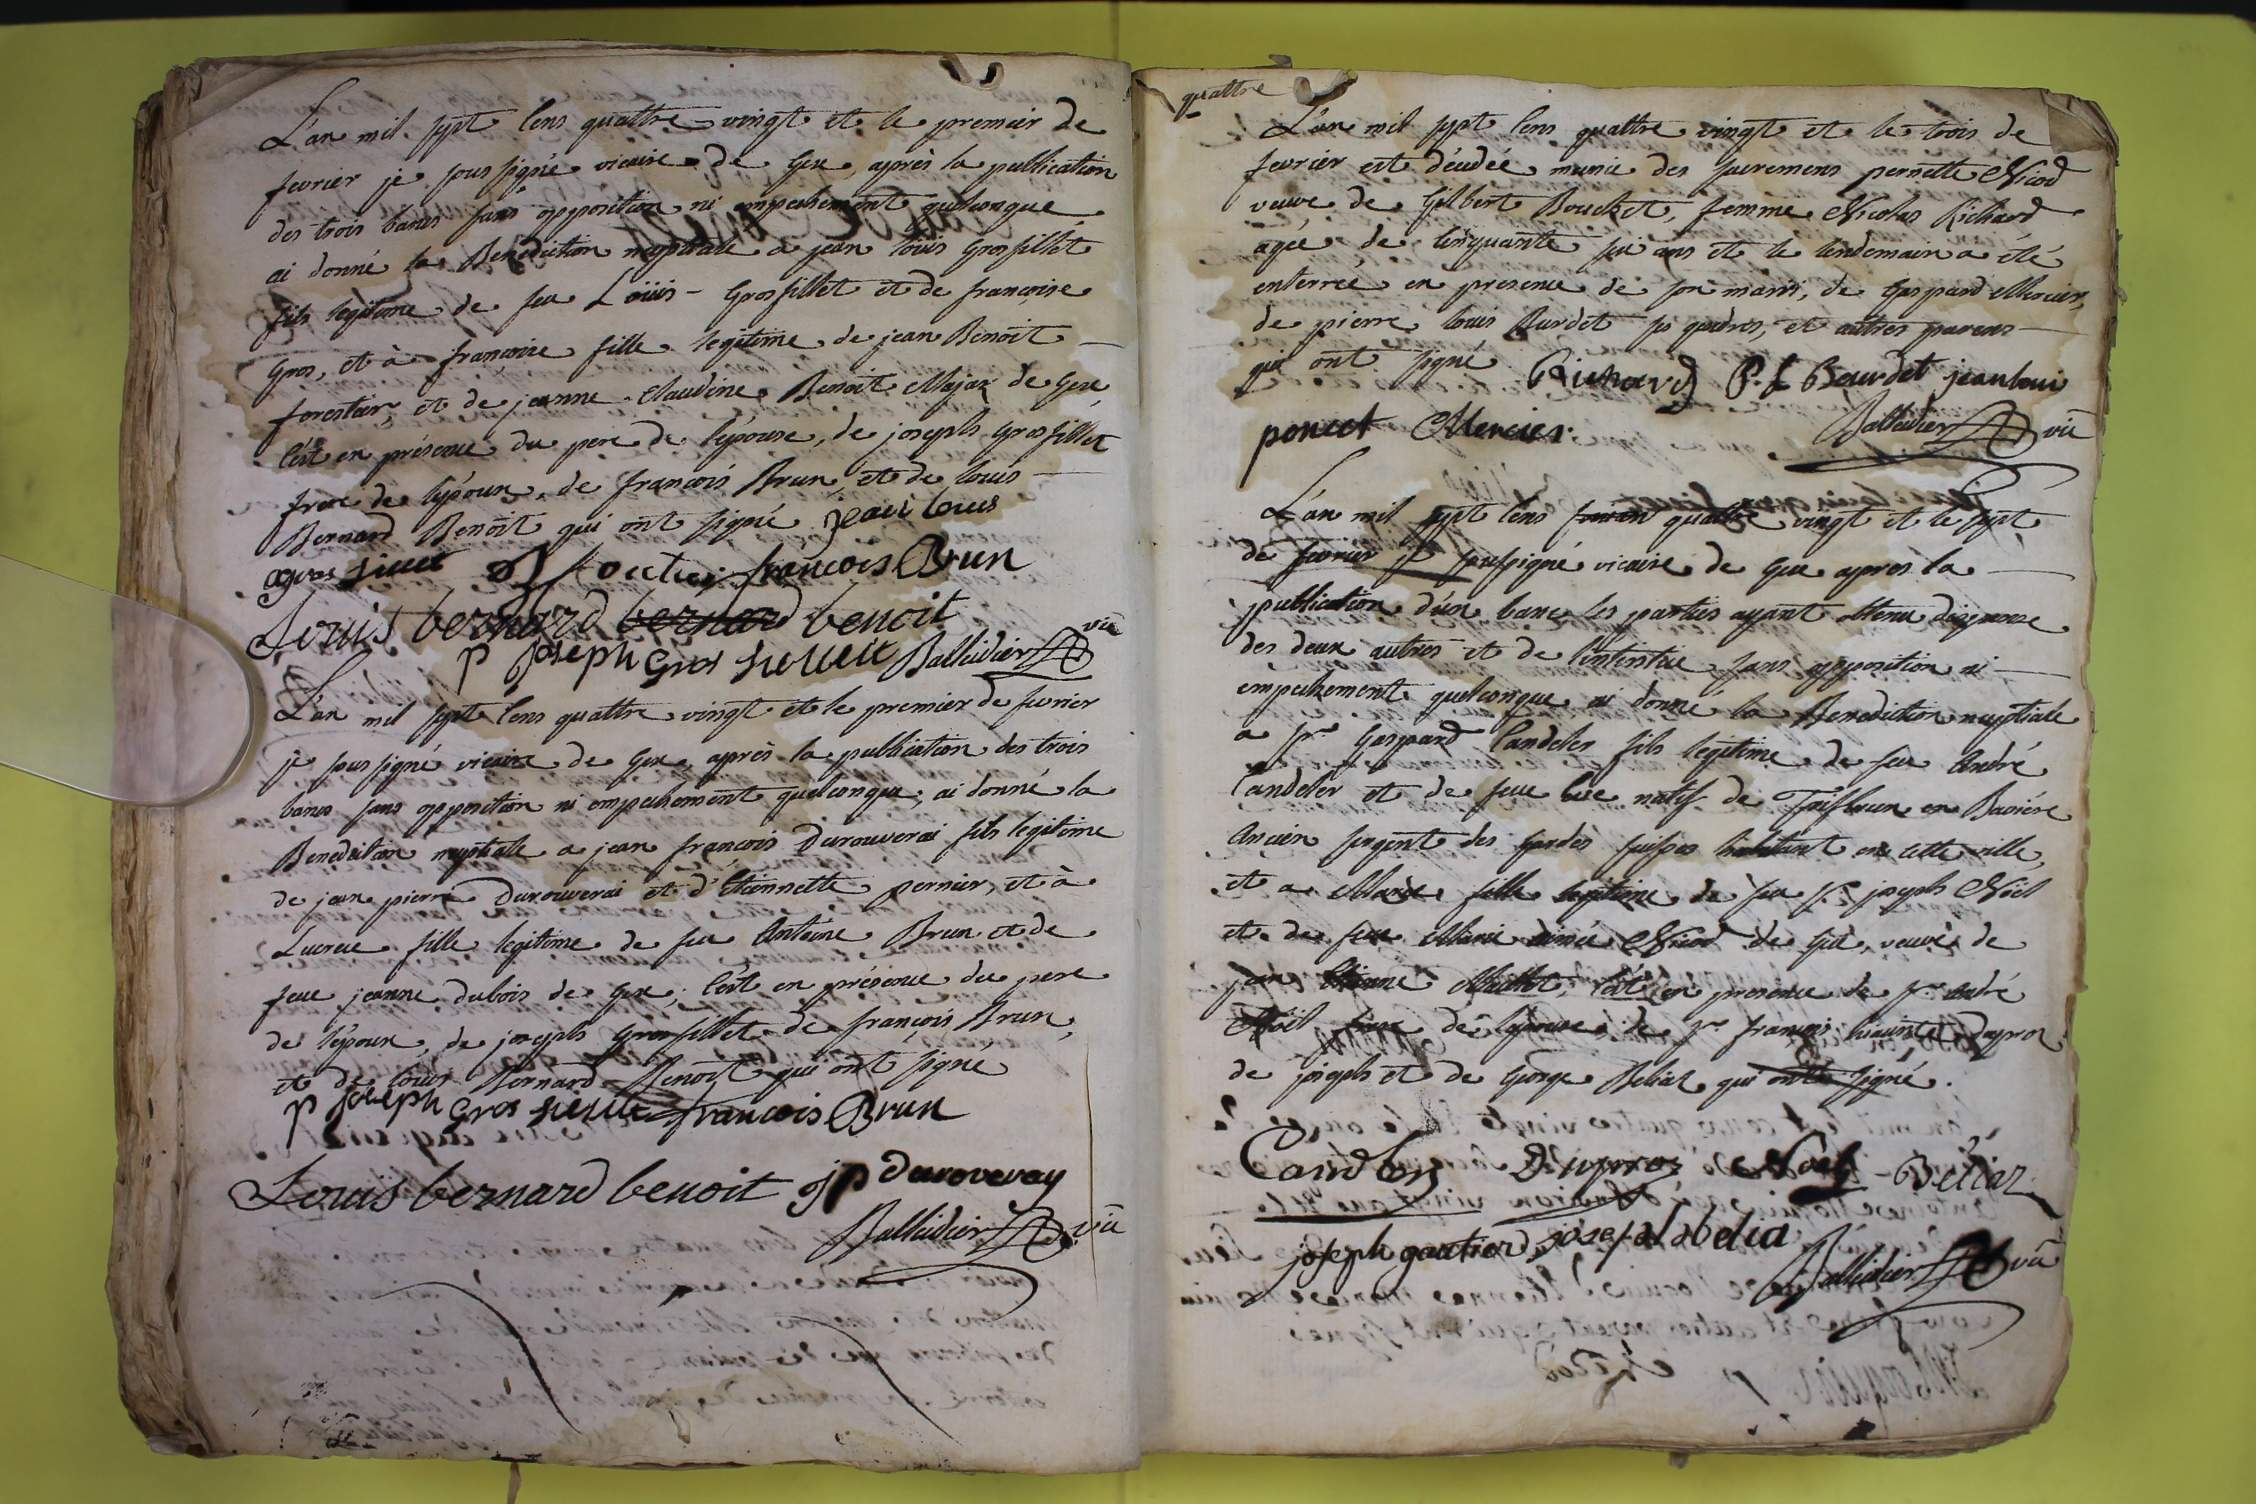 L'an mil sept cens quattre vingt et le premier de
fevrier je sous signé vicaire de Gex, après la publication
des trois bancs sans opposition ni empechement quelconque
ai donné la Benediction nuptiale a jean louis Grosfillet
fils legitime de feu Loüis - Grosfillet et de françoise
Gros, et à françoise fille legitime de jean Benoit
forestier, et de jeanne Claudine Benoit Majax de Gex,
c'est en présence du pere de l'épouse, de joseph Grosfillet
frere de l'époux, de françois Brun, et de louis
Bernard Benoit qui ont signé jean louis
gros françois Brun
Louis bernard bernard benoit
p joseph Gros Balleidier vic
L'an mil sept cens quattre vingt et le premier de fevrier
je sous signé vicaire de Gex, après la publication des trois
bancs sans opposition ni empechement quelconque, ai donné la
Benediction nuptiale a jean françois Durouverai fils legitime
de jean pierre Durouverai et d'Etiennette pernier, et à
Lucrece fille legitime de feu Antoine Brun et de
feue jeanne dubois de Gex, c'est en présence du pere
de l'époux, de joseph Grosfillet de françois Brun,
et de louis Bernard Benoit qui ont signé
p joseph Gros françois Brun
Louis bernard benoit jp duroveray
Balleidier vic
quattre
L'an mil sept cens quattre vingt et le trois de
fevrier est décédée munie des sacremens pernette Nicod
veuve de Gilbert Bouchet, femme Nicolas Richard
agée de cinquante six ans et le lendemain a été
enterrée en presence de son marri, de Gaspard Mercier,
de pierre louis Burdet et autres parens
qui ont signé Richard P. L Bourdet jean loui
poncet Mercier. Balleidier vic
L'an mil sept cens quattre vingt et le sept
de fevrier je soussigné vicaire de Gex apres la
publication d'un banc les parties ayant obtenu dispense
des deux autres et de sans opposition ni
empechement quelconque ai donné la Benediction nuptiale
a Sr Gaspard Candeler fils legitime de feu André
Candeler et de feue natif de en Baviére
Ancien sergent des Gardes suisses habitant en cette ville,
et a Marie fille legitime de feu Sr joseph Noël
et de feue Marie aimée Nicod de Gex, veuve de
jean Etienne c'est en presence de Sr André
Noël frere de l'epouse, de Sr françois Duproz
de joseph et de George Beliaz qui ont signé.
Duproz Noel - Beliaz
joseph gautier joseph abelia
Balleidier vic